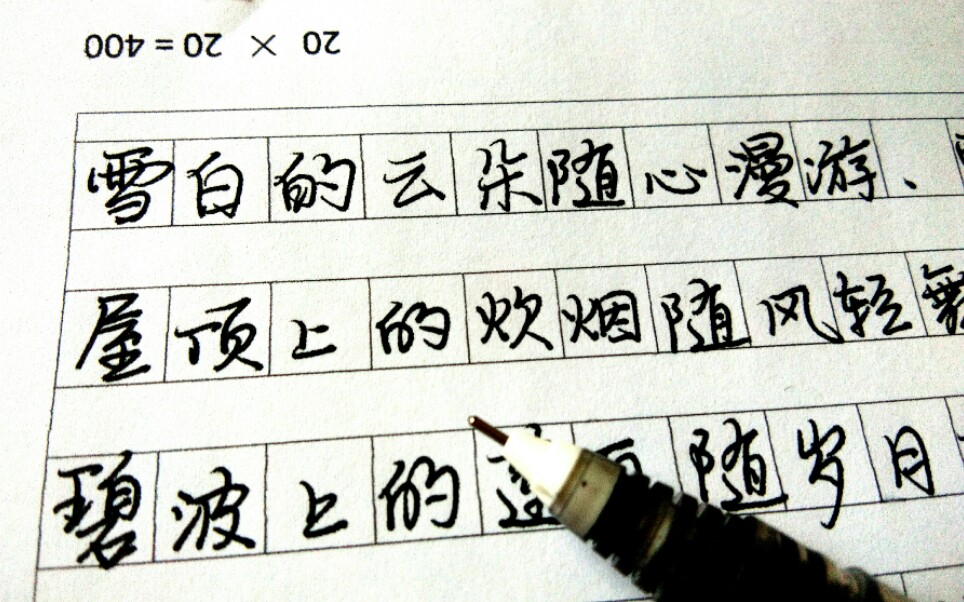 20 × 20 = 400
雪白的云朵随心漫游、
屋顶上的炊烟随风轻舞
碧波上的 随岁月